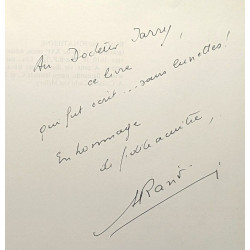 Au Docteur Tarry,
ce livre
qui fut écrit ... sans lunettes !
En hommage
de fidèle amitié,